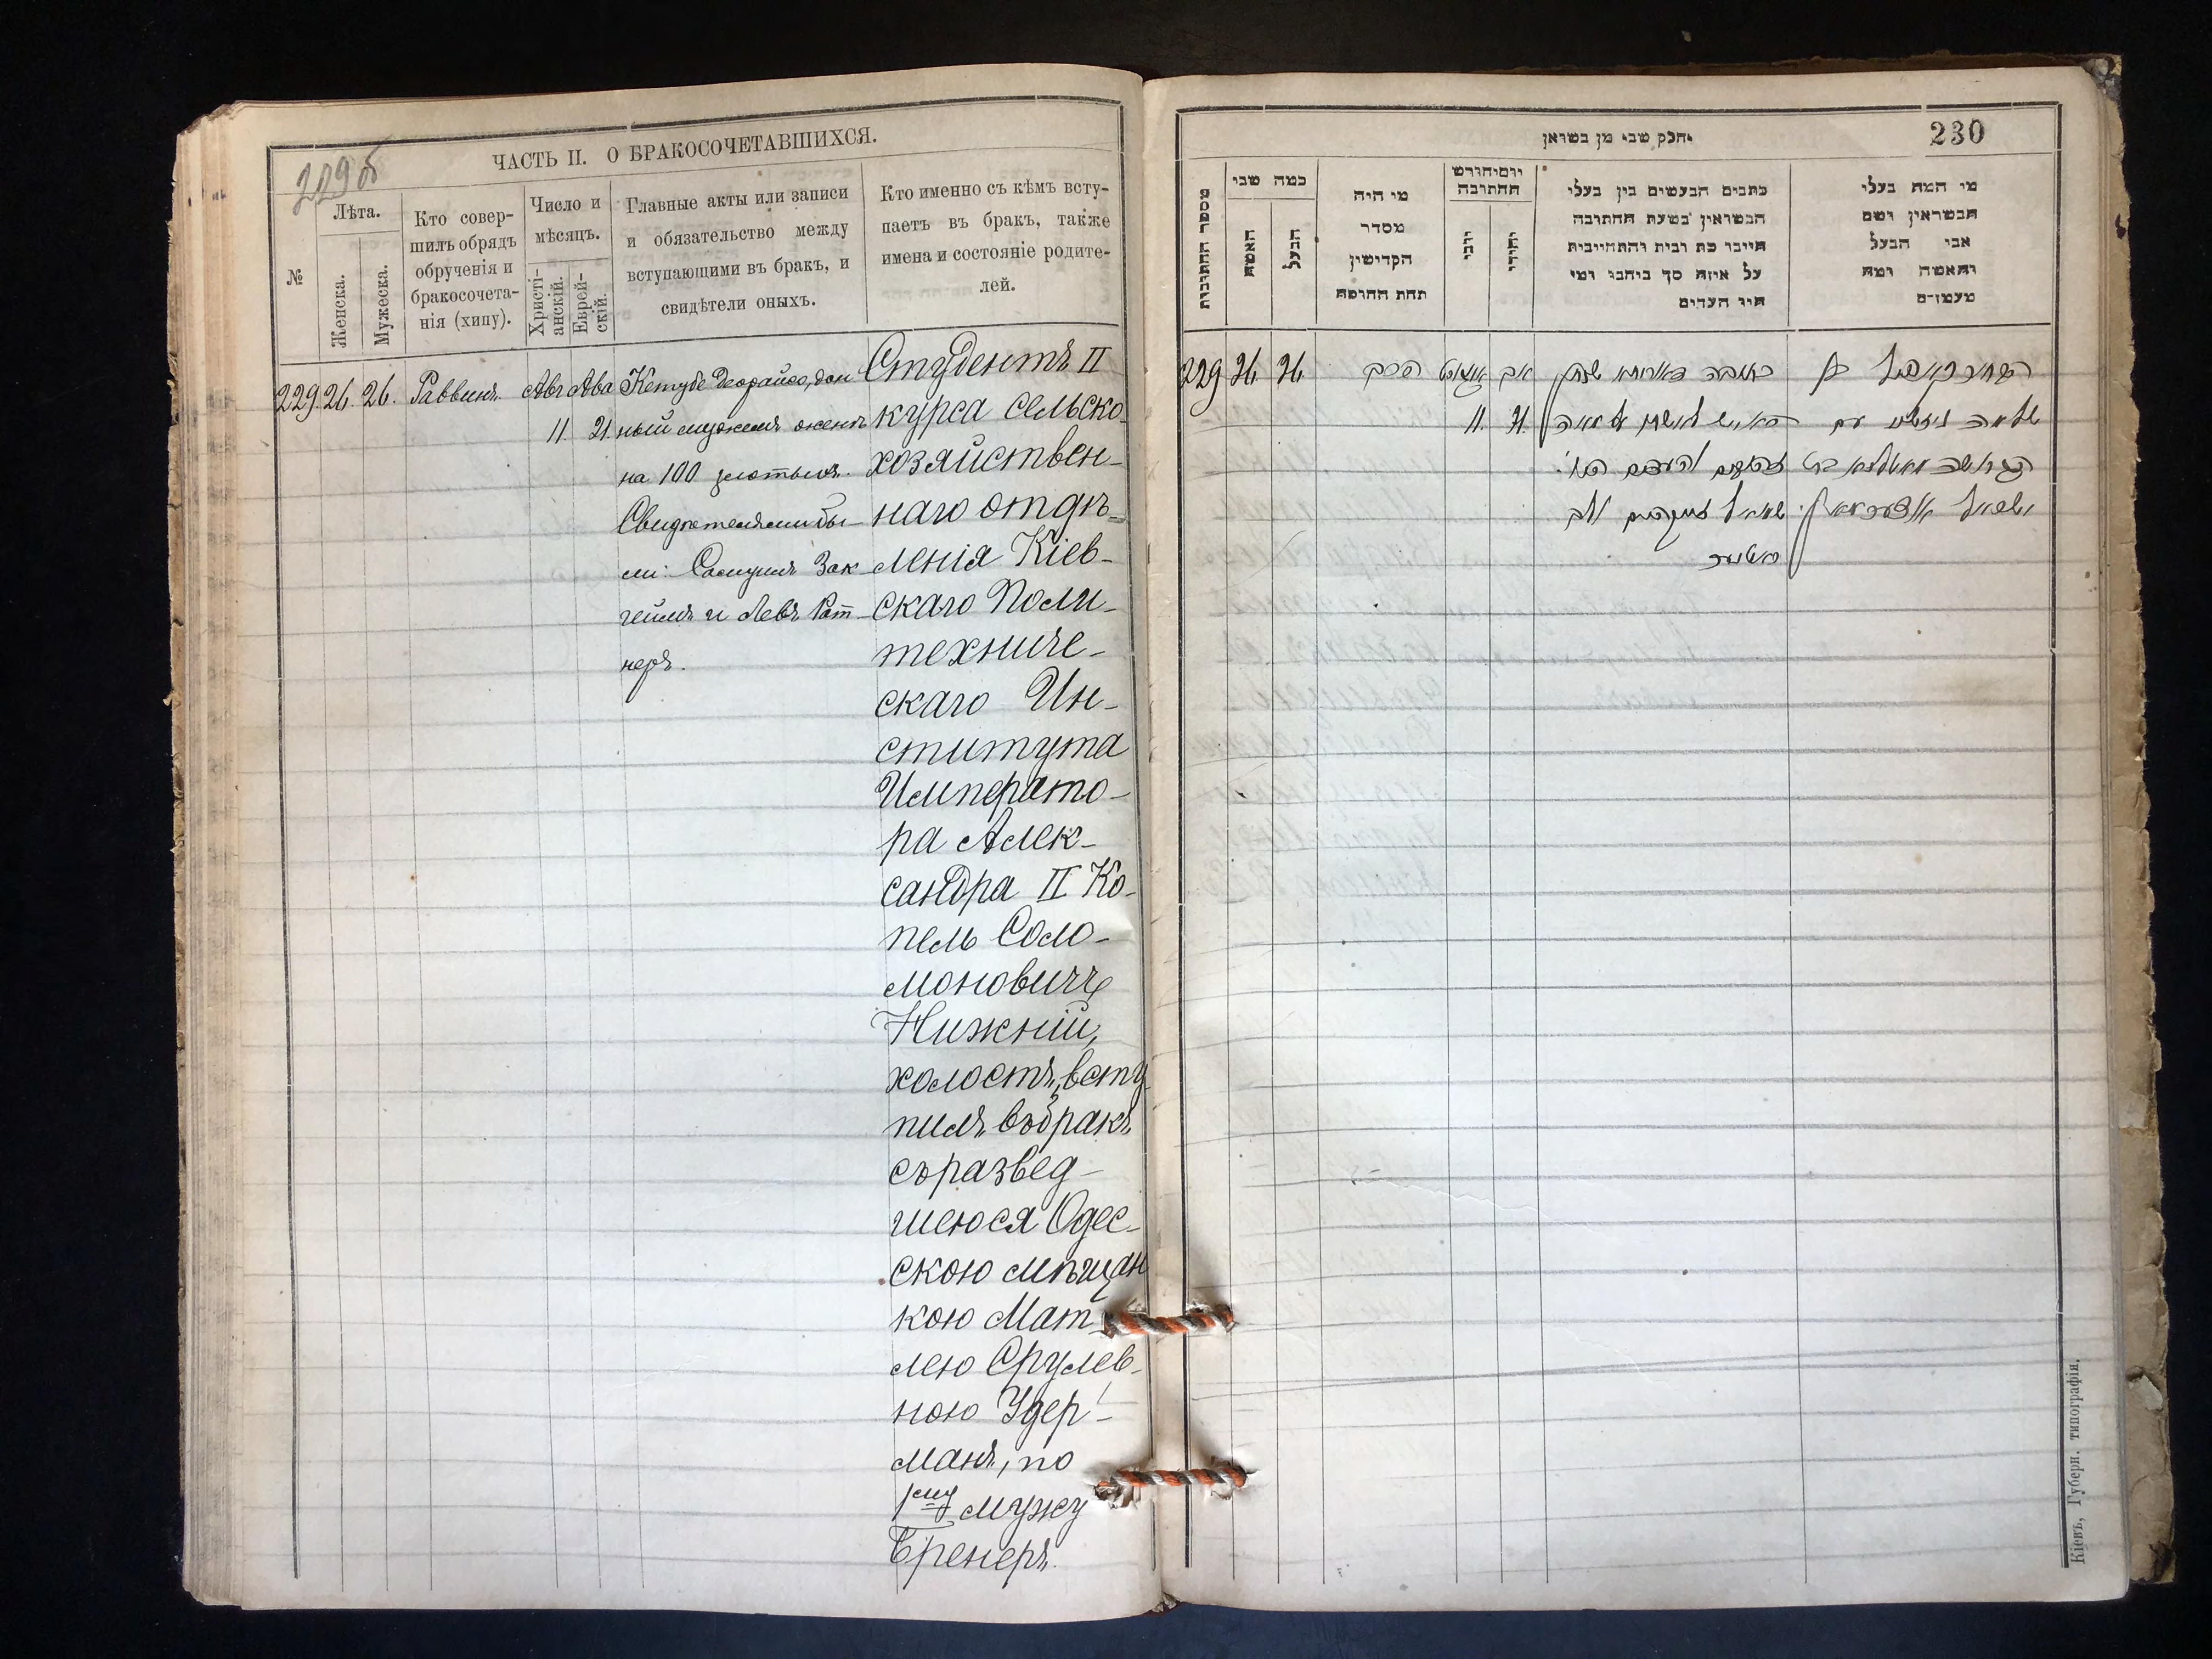 229 об
ЧАСТЬ II. О БРАКОСОЧЕТАВШИХСЯ.
№
Лѣта.
Женска.
Мужеска.
Кто совер-
шилъ обрядъ
обрученія и
бракосочета-
нія (хипу).
Число и
мѣсяцъ.
Христі-
анскій.
Еврей-
скій.
Главные акты или записи
и обязательство между
вступающими въ бракъ, и
свидѣтели оныхъ.
Кто именно съ кѣмъ всту-
паетъ въ бракъ, также
имена и состояніе родите-
лей.
229. 26. 26. Раввинъ. Авг Ава
11. 21.
Кетубе Деорайсо, дан
ный мужемъ женѣ
на 100 злотыхъ.
Свидѣтелями бы-
ли: Самуилъ Зак
геймъ и Левъ Рат-
неръ.
Студентъ II
курса сельско-
хозяйствен-
наго отдѣ-
ленія Кіев-
скаго Поли-
техниче-
скаго Ин-
ститута
Императо-
ра Алек-
сандра II Ко-
пель Соло-
моновичъ
Нижній,
холостъ, всту
пилъ въ бракъ
съ развед-
шеюся Одес-
скою мѣщан
кою Мат-
лею Срулев-
ною Удер-
манъ, по
1му мужу
Бренеръ.
230
מספר החתונות
כמה שני
האשה
הבעל
מי היה
מסדר
הקדושין
תחת החופה
יום וחודש
החתונה
נוצרי
יהודי
כתבים הנעשים בין בעלי
הנשואין בשעת החתונה
היינו כת ובית והתחייבות
על איזה סך ביחבו ומי
היו העדים
מי המה בעלי
הנשואין ושם
אבי הבעל
והאשה ומה
מעמדם
229 26 26 הרב אוגוסט אב
11. 21.
כתובה דאורייתא שנתן
שמואל זאקהיים ולב
ראטנער
שלמה ניזשני עם
Кіевъ, Губерн. типографія.